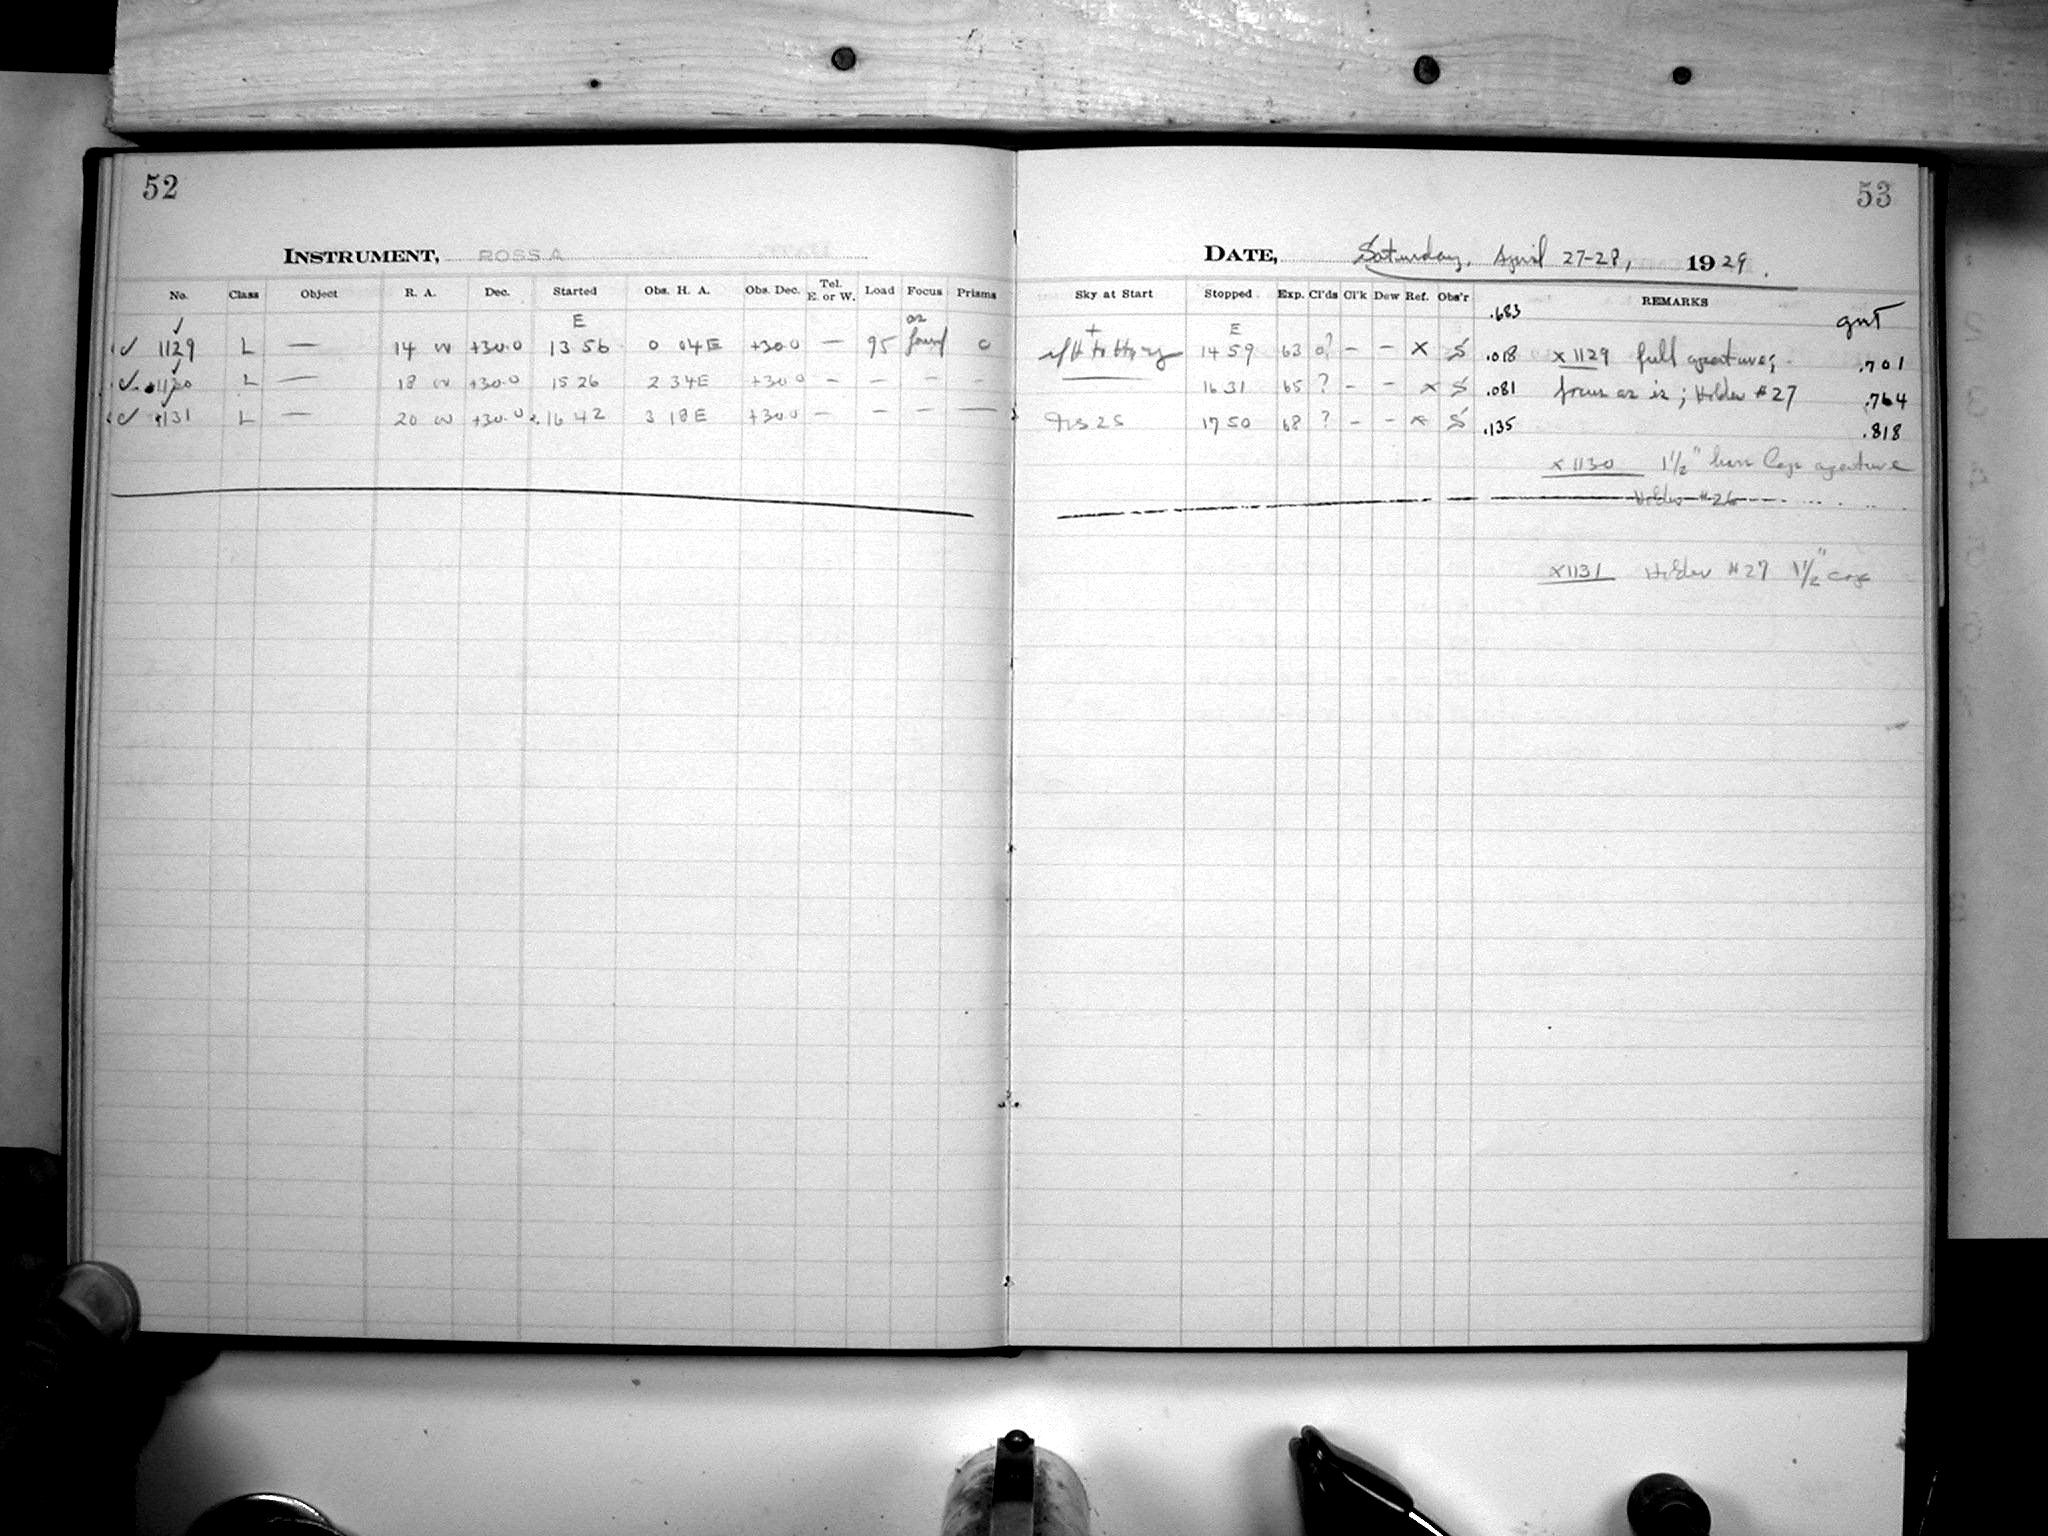 52
INSTRUMENT, ROSS A
No. Class Object R. A. Dec. Started Obs. H. A. Obs. Dec. Tel. E. or W. Load Focus Prisms
E as
✓ 1129 L — 14 w +30.0 13 56 0 04E +300 — 95 found 0
✓ 1130 L — 18 w +30.0 15 26 2 34E +300 — — — —
✓ 1131 L — 20 w +30.0 16 42 3 18E +300 — — — —
53
DATE, Saturday, April 27-28, 1929.
Sky at Start Stopped Exp. Cl'ds Cl'k Dew Ref. Obs'r REMARKS
.683 gmt
E
14 59 63 0? — — x S .018 x 1129 full aperture; .701
16 31 65 ? — — x S .081 focus as is; Holder #27 .764
17 50 68 ? — — x S .135 .818
x 1130 1½" aperture
Holder #26
x1131 Holder #27 1½" cap